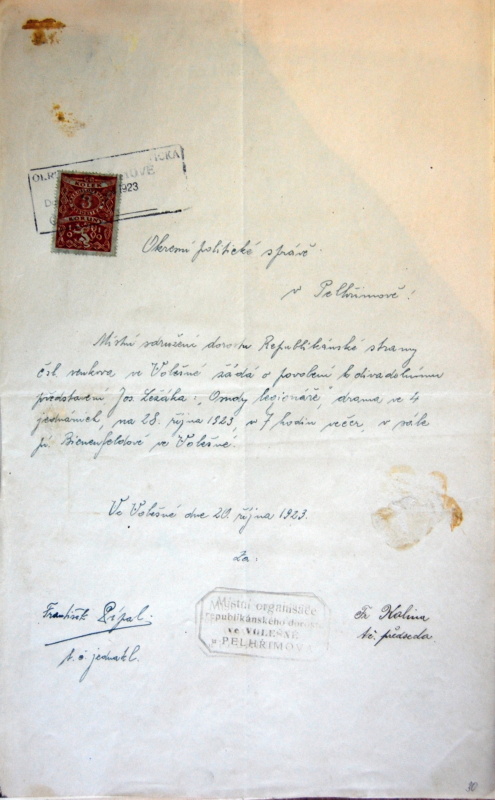 1923
KOLEK
3
KORUNY
Okresní politické správě
v Pelhřimově!
Místní sdružení dorostu Republikánské strany
čsl. venkova ve Volešné žádá o povolení k divadelnímu
představení Jos. Ležáka: "Osudy legionáře", drama ve 4
jednáních, na 28. října 1923, v 7 hodin večer, v sále
pí. Bienenfeldové ve Volešné.
Ve Volešné dne 20. října 1923.
Za:
Místní organisace
republikánského dorostu
ve VOLEŠNÉ
u PELHŘIMOVA
František
t. č. jednatl.
Fr. Kalina
tč. předseda.
30